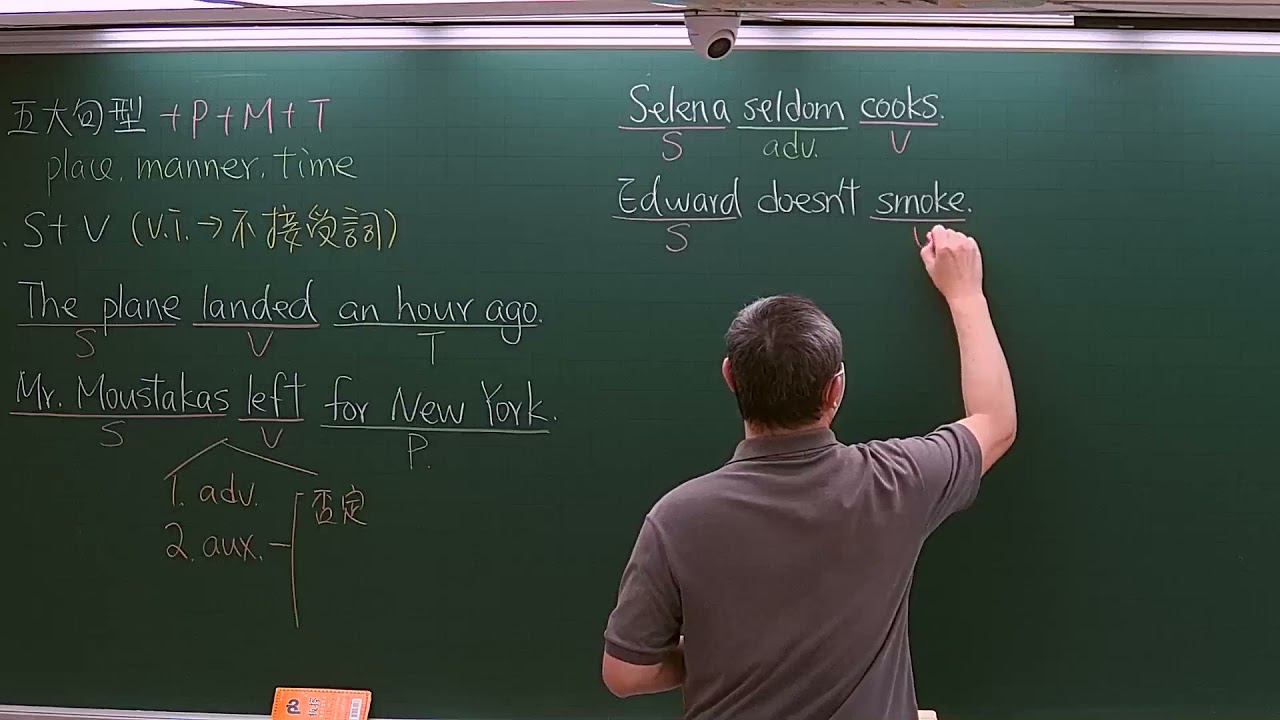 五大句型 +P+M+T
place, manner, time
. S+V (v.i. → 不接受詞)
The plane landed an hour ago.
S V T
Mr. Moustakas left for New York.
S V P.
1. adv.
否定
2. aux.
Selena seldom cooks.
S adv. V
Edward doesn't smoke.
S